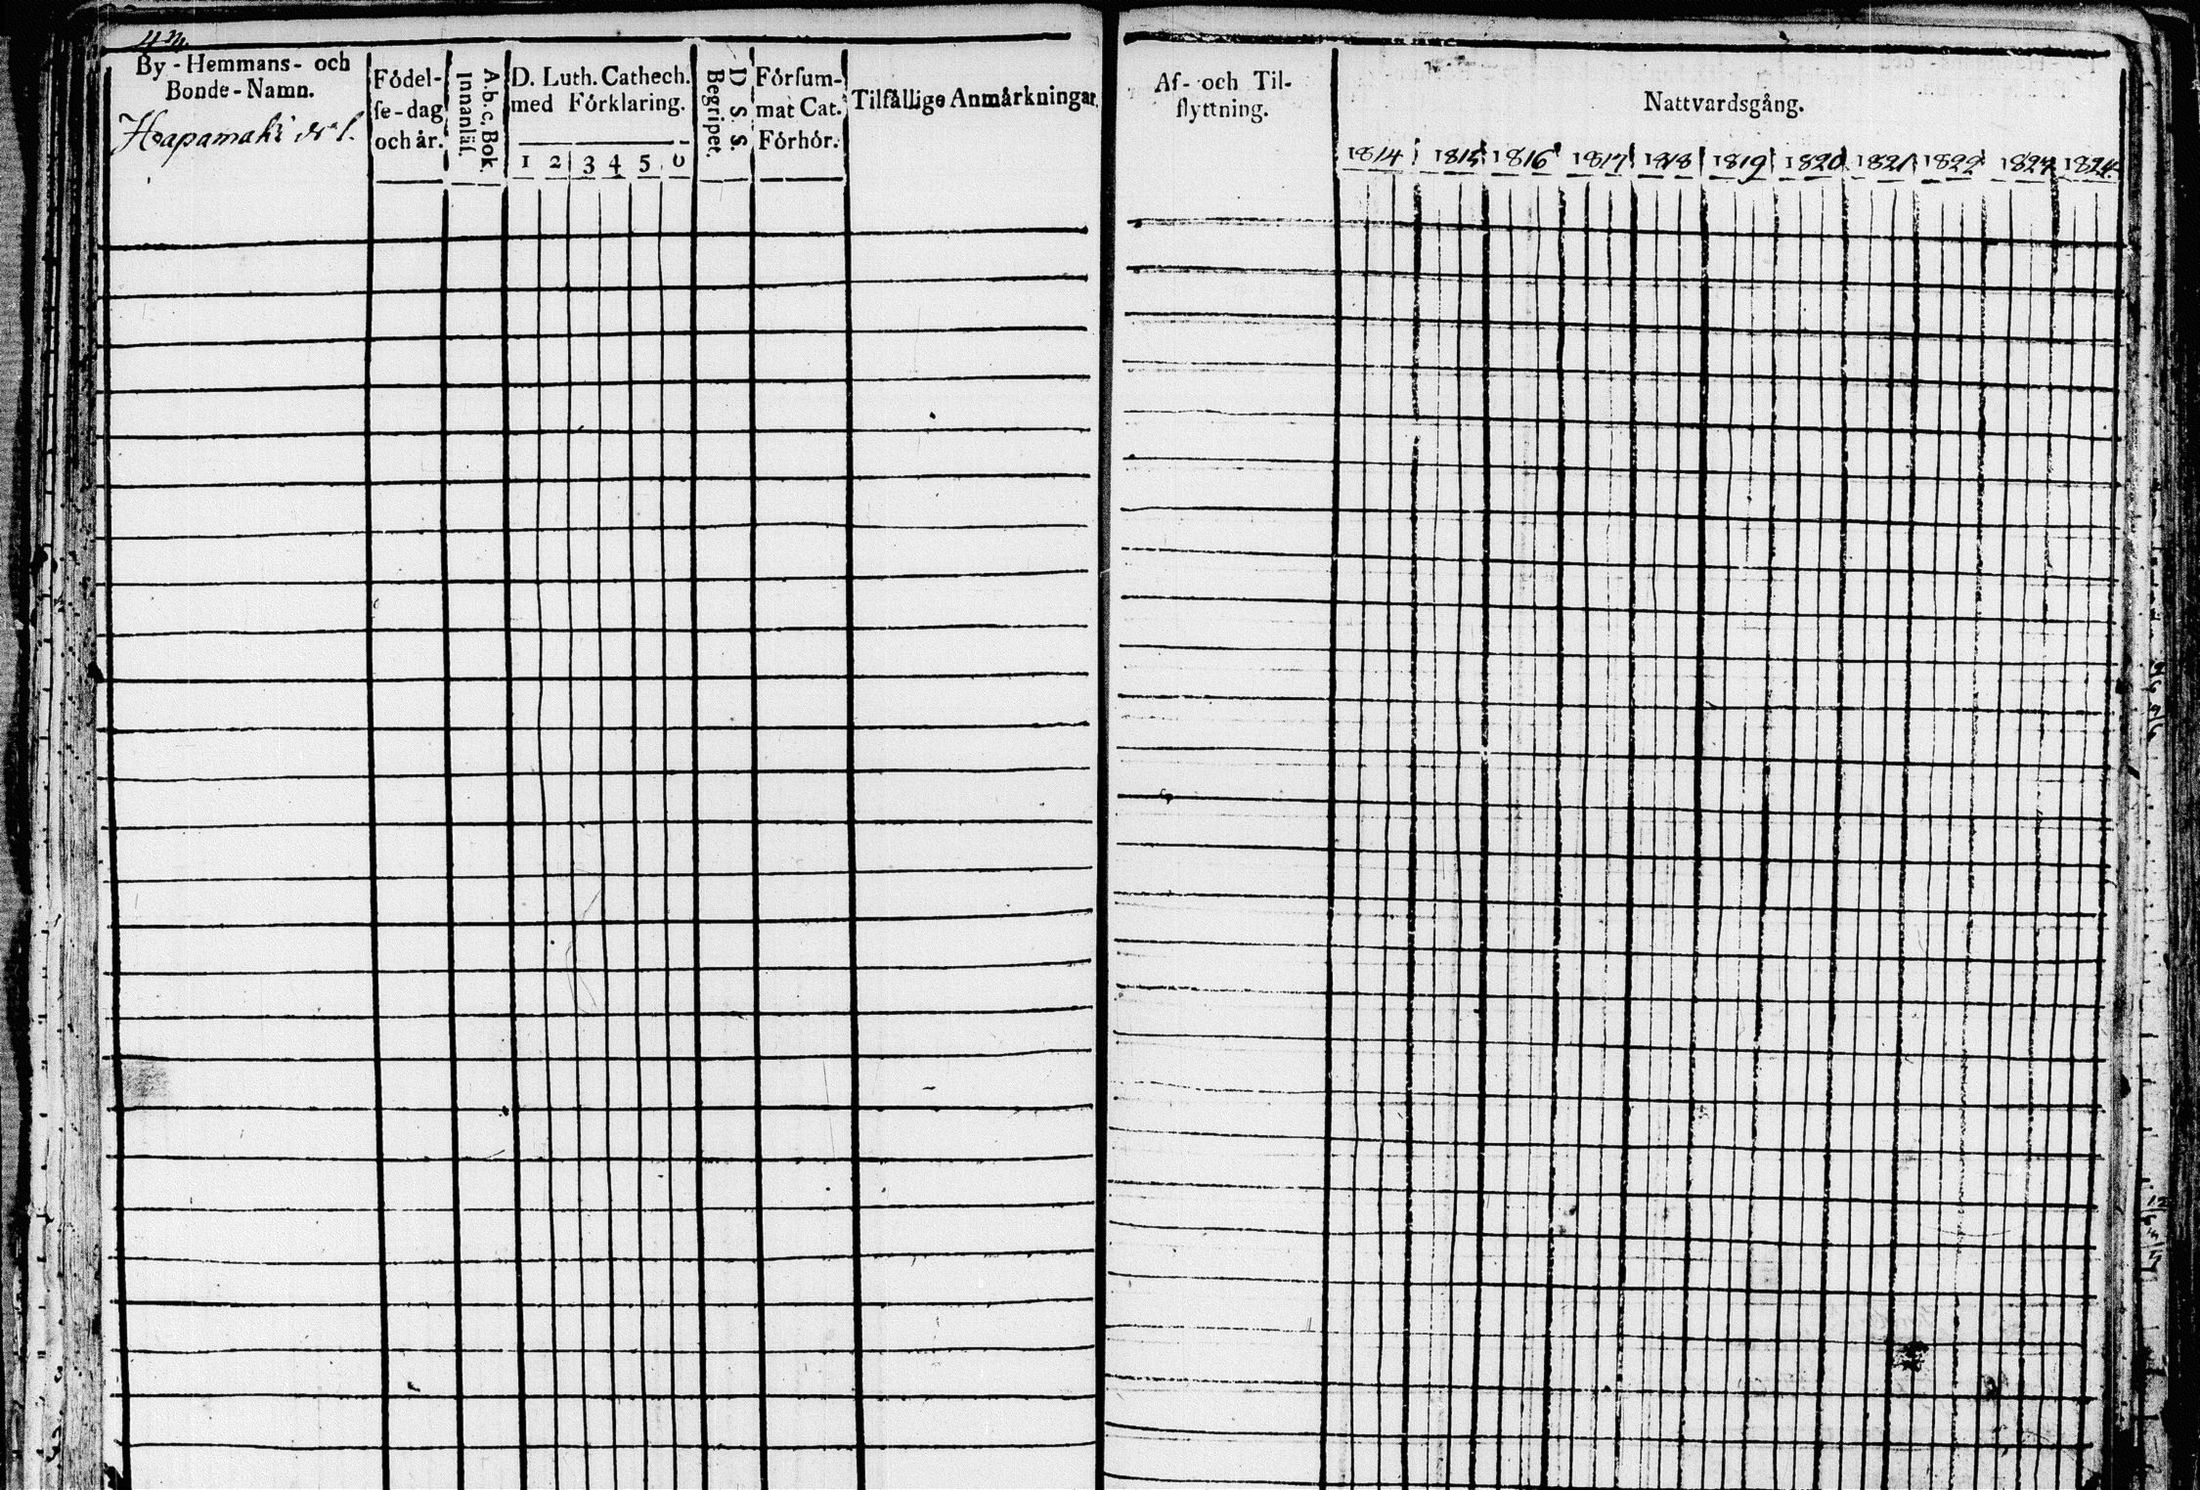 By-Hemmans- och
Bonde-Namn.
Haapamäki N:o 1.
Födel-
se-dag
och år.
A.b.c. Bok
Innanläs.
D. Luth. Cathech.
med Förklaring.
1 2 3 4 5 6
D. S. S.
Begripet.
Försum-
mat Cat.
Förhör.
Tilfällige Anmärkningar.
Af- och Til-
flyttning.
Nattvardsgång.
1814 1815 1816 1817 1818 1819 1820 1821 1822 1823 1824